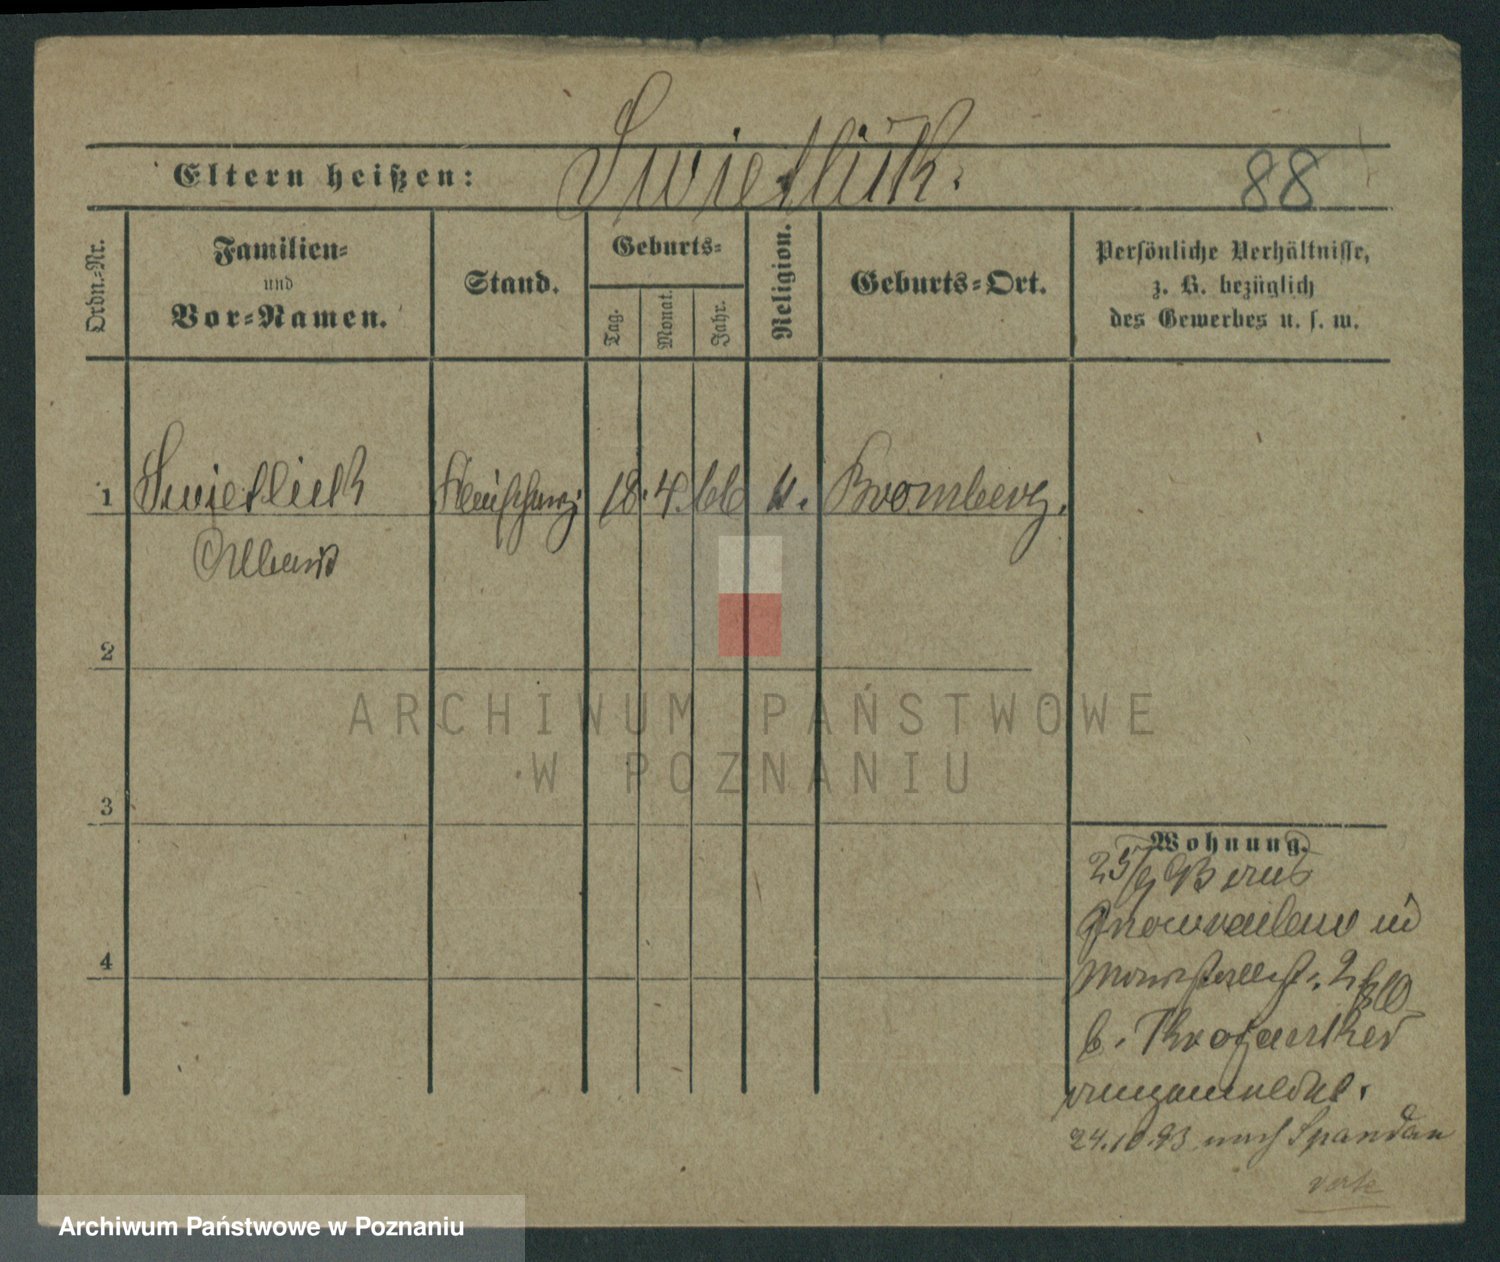 Eltern heißen: Swietlik. 88
Ordn.-Nr.
Familien-
und
Vor-Namen.
Stand.
Geburts-
Tag.
Monat.
Jahr.
Religion.
Geburts-Ort.
Persönliche Verhältnisse,
z. B. bezüglich
des Gewerbes u. s. w.
1 Swietlik 18. 4. 66 k. Bromberg.
2
3
4
Wohnung.
25/9 93 aus
Inowrazlaw in
2/10
b.
angemeldet.
24.10.93 nach Spandau
verte
ARCHIWUM PAŃSTWOWE
W POZNANIU
Archiwum Państwowe w Poznaniu